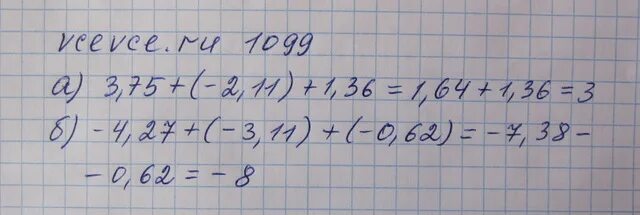 vcevce.ru 1099
а) 3,75+(-2,11)+1,36=1,64+1,36=3
б) -4,27+(-3,11)+(-0,62)=-7,38-
-0,62=-8